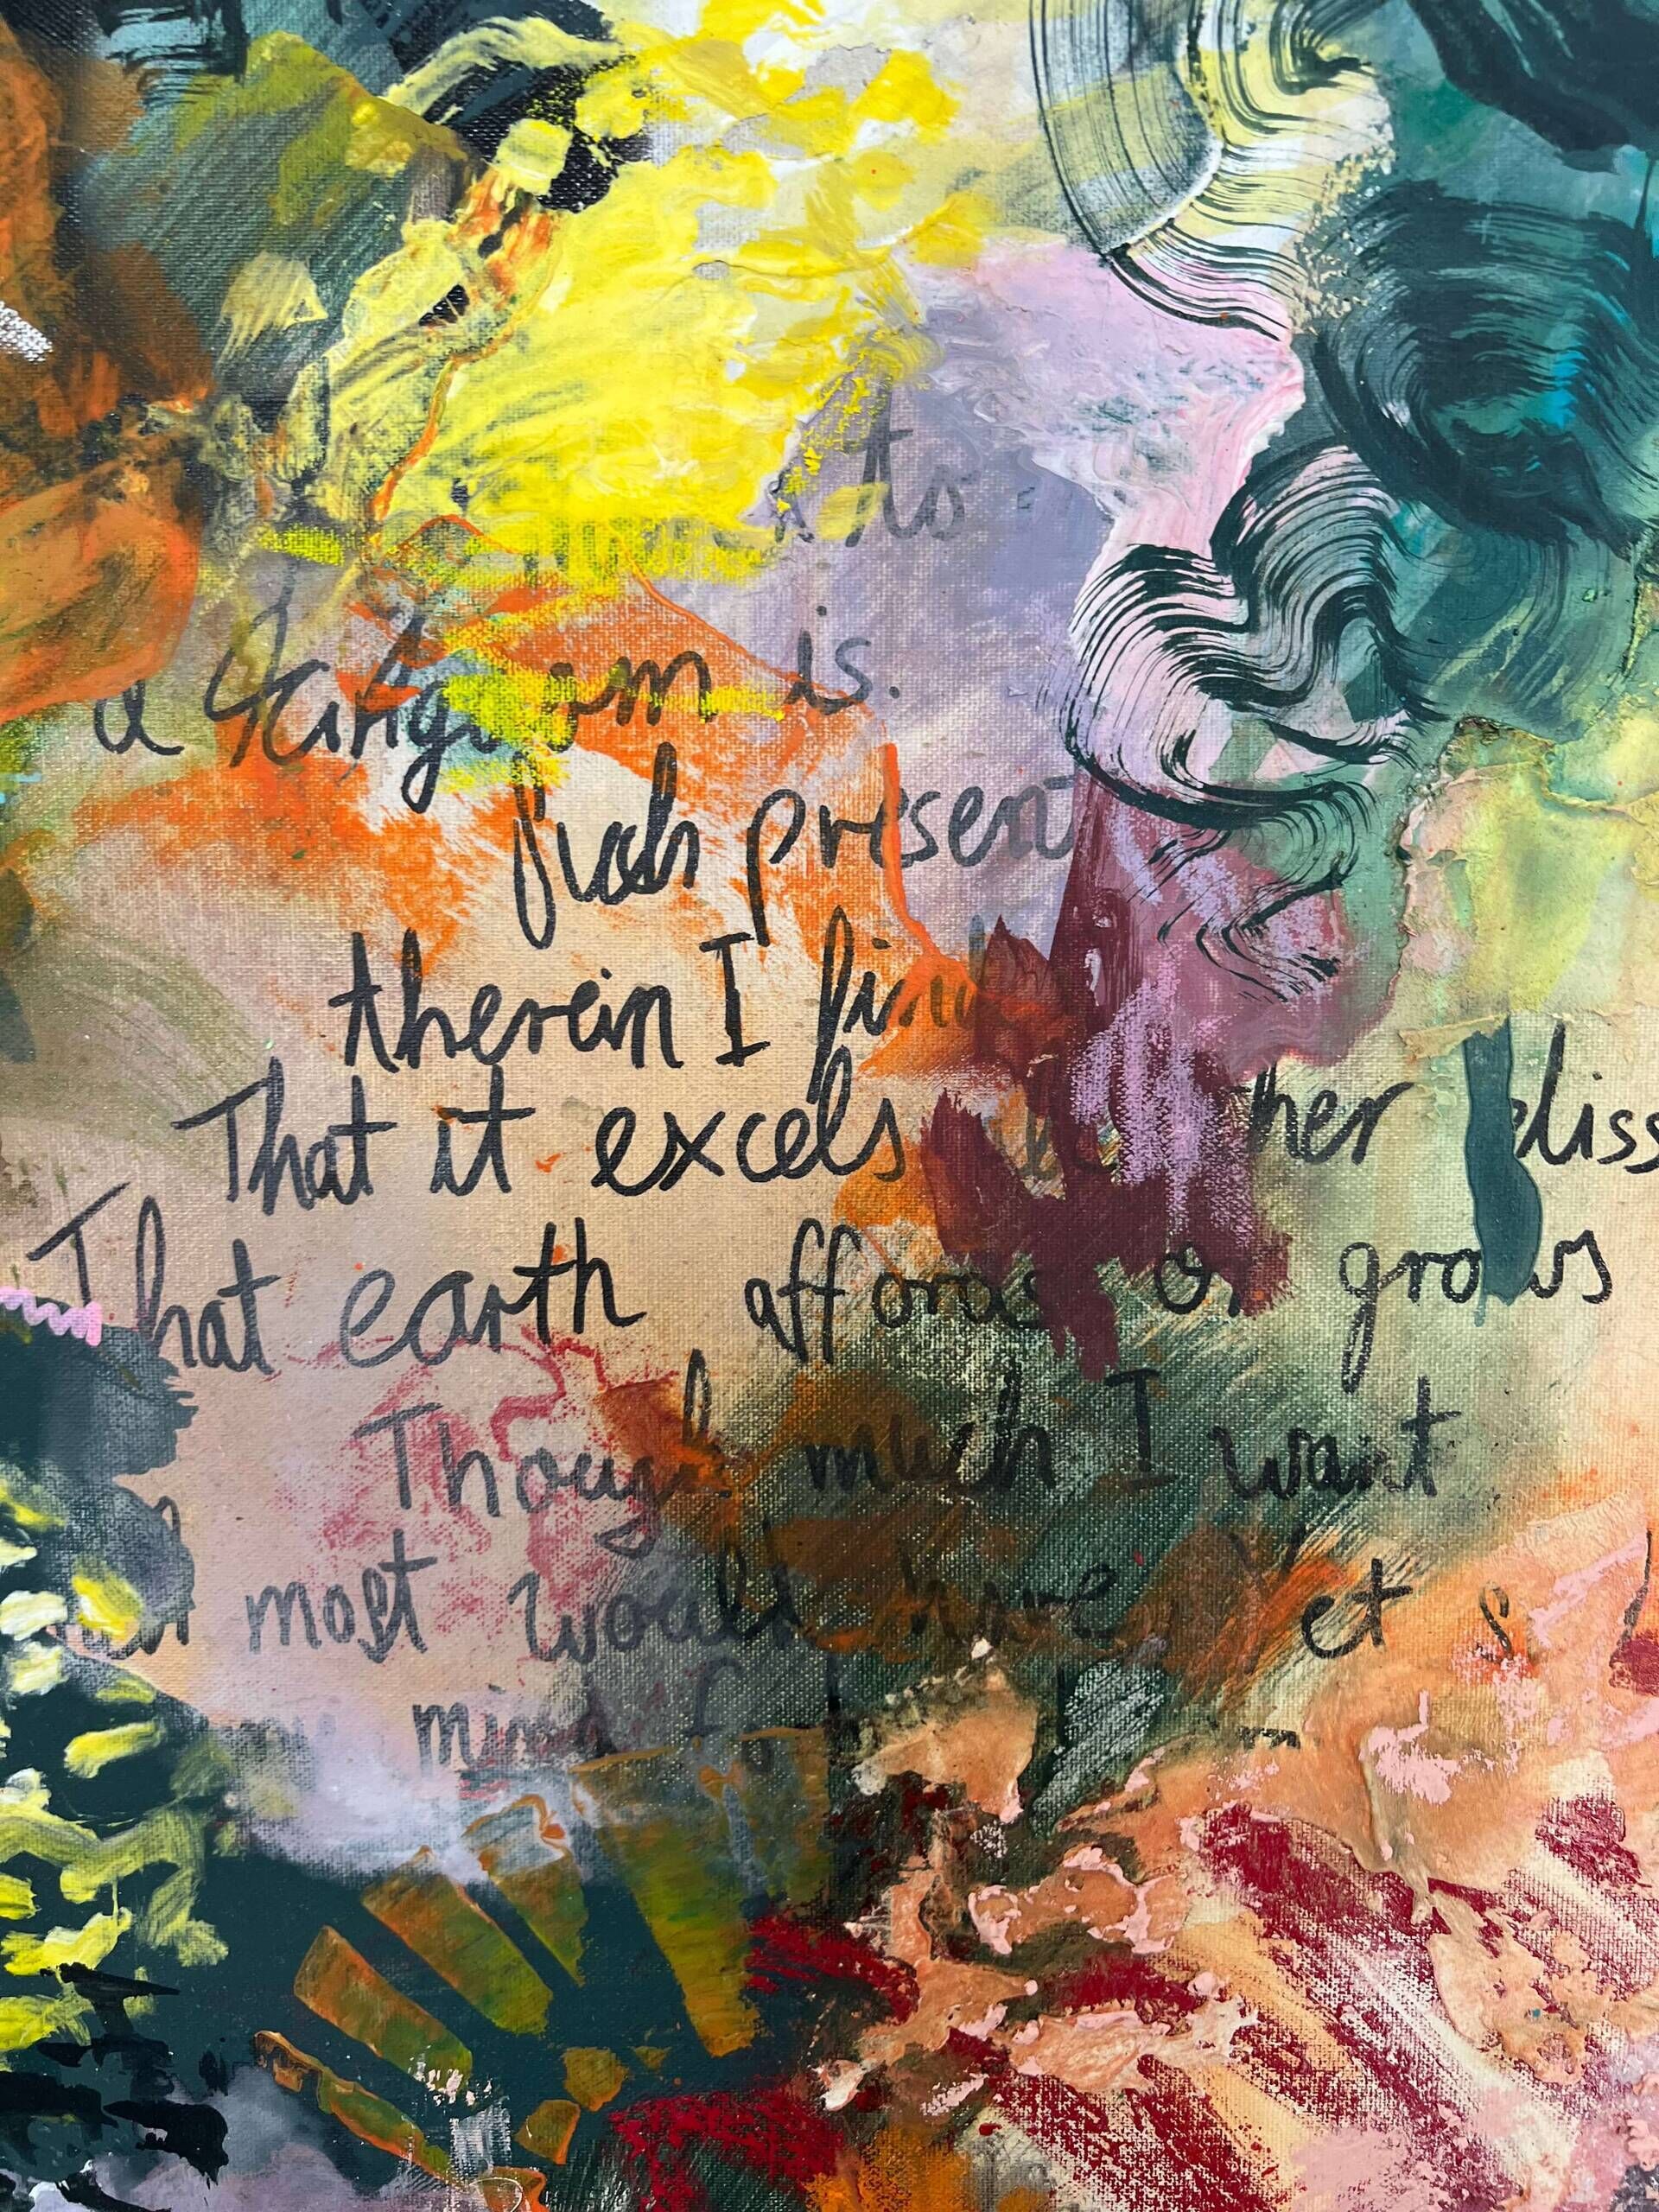 to
a kingdom is.
Such present
therein I find
That it excels her bliss
That earth affords or grows
Though much I want
most would have Yet
my mind